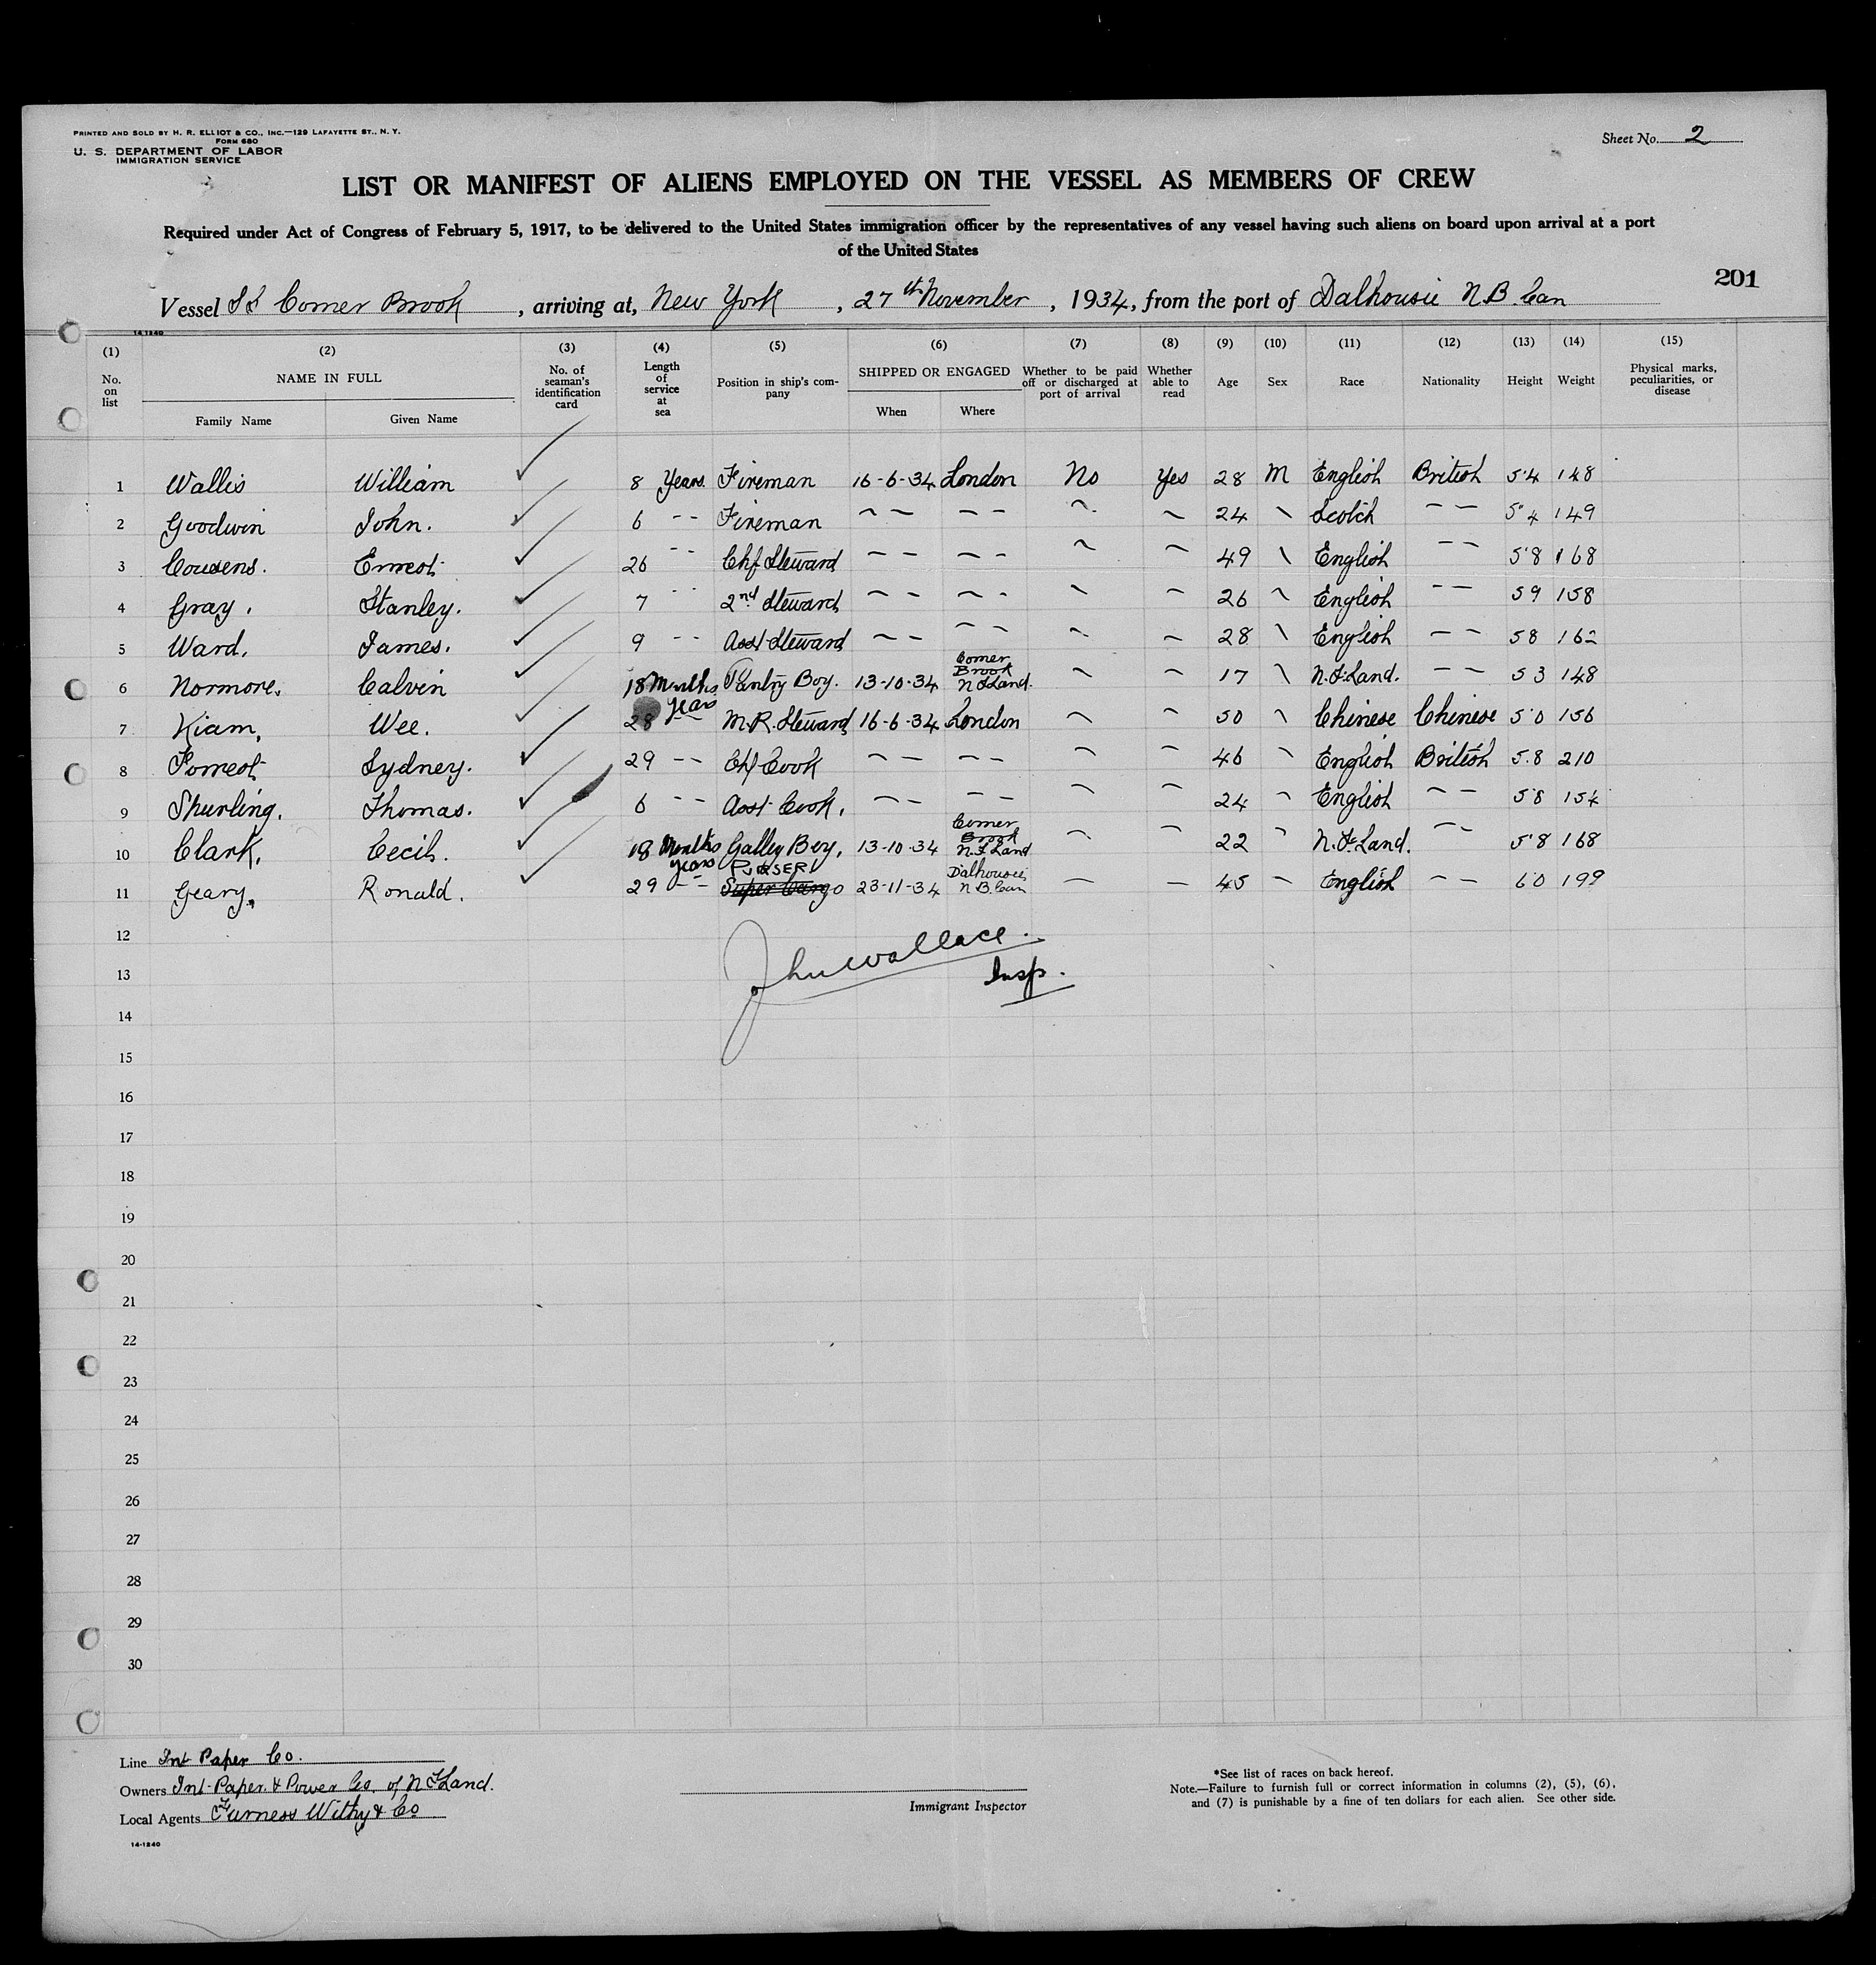 PRINTED AND SOLD BY H. R. ELLIOT & CO., INC.—129 LAFAYETTE ST., N. Y.
FORM 680
U. S. DEPARTMENT OF LABOR
IMMIGRATION SERVICE
Sheet No. 2
LIST OR MANIFEST OF ALIENS EMPLOYED ON THE VESSEL AS MEMBERS OF CREW
Required under Act of Congress of February 5, 1917, to be delivered to the United States immigration officer by the representatives of any vessel having such aliens on board upon arrival at a port
of the United States
201
Vessel SS Corner Brook, arriving at, New York, 27th November, 1934, from the port of Dalhousie N.B. Can
14-1240
(1) (2) (3) (4) (5) (6) (7) (8) (9) (10) (11) (12) (13) (14) (15)
No. on list NAME IN FULL Family Name Given Name No. of seaman's identification card Length of service at sea Position in ship's company SHIPPED OR ENGAGED When Where Whether to be paid off or discharged at port of arrival Whether able to read Age Sex Race Nationality Height Weight Physical marks, peculiarities, or disease
1 Wallis William 8 Years. Fireman 16-6-34 London No Yes 28 M English British 5'4 148
2 Goodwin John. 6 -- Fireman -- -- - - 24 \ Scotch -- 5'4 149
3 Cousens. Ernest 26 -- Chf Steward -- -- - - 49 \ English -- 5'8 168
4 Gray. Stanley. 7 -- 2nd Steward -- -- - - 26 \ English -- 5 9 158
5 Ward. James. 9 -- Asst Steward -- -- - - 28 \ English -- 5 8 162
6 Normore. Calvin 18 Months Pantry Boy. 13-10-34 Corner Brook N.F.Land. - - 17 \ N.F.Land. -- 5 3 148
7 Kiam, Wee. 28 years -- M.R. Steward 16-6-34 London - - 50 \ Chinese Chinese 5'0 156
8 Forrest Sydney. 29 -- Chf Cook -- -- - - 46 \ English British 5.8 210
9 Shurling. Thomas. 6 -- Asst Cook. -- -- - - 24 - English -- 5'8 154
10 Clark, Cecil. 18 Months Galley Boy. 13-10-34 Corner Brook N.F.Land - - 22 - N.F.Land. -- 5'8 168
11 Geary. Ronald. 29 years -- PURSER Super Cargo 23-11-34 Dalhousie N.B. Can - - 45 - English -- 6'0 199
12
John Wallace.
13
Insp.
14
15
16
17
18
19
20
21
22
23
24
25
26
27
28
29
30
Line Int Paper Co.
Owners Int. Paper & Power Co. of N.F.Land.
Local Agents Furness Withy & Co
14-1240
Immigrant Inspector
*See list of races on back hereof.
Note.—Failure to furnish full or correct information in columns (2), (5), (6),
and (7) is punishable by a fine of ten dollars for each alien. See other side.